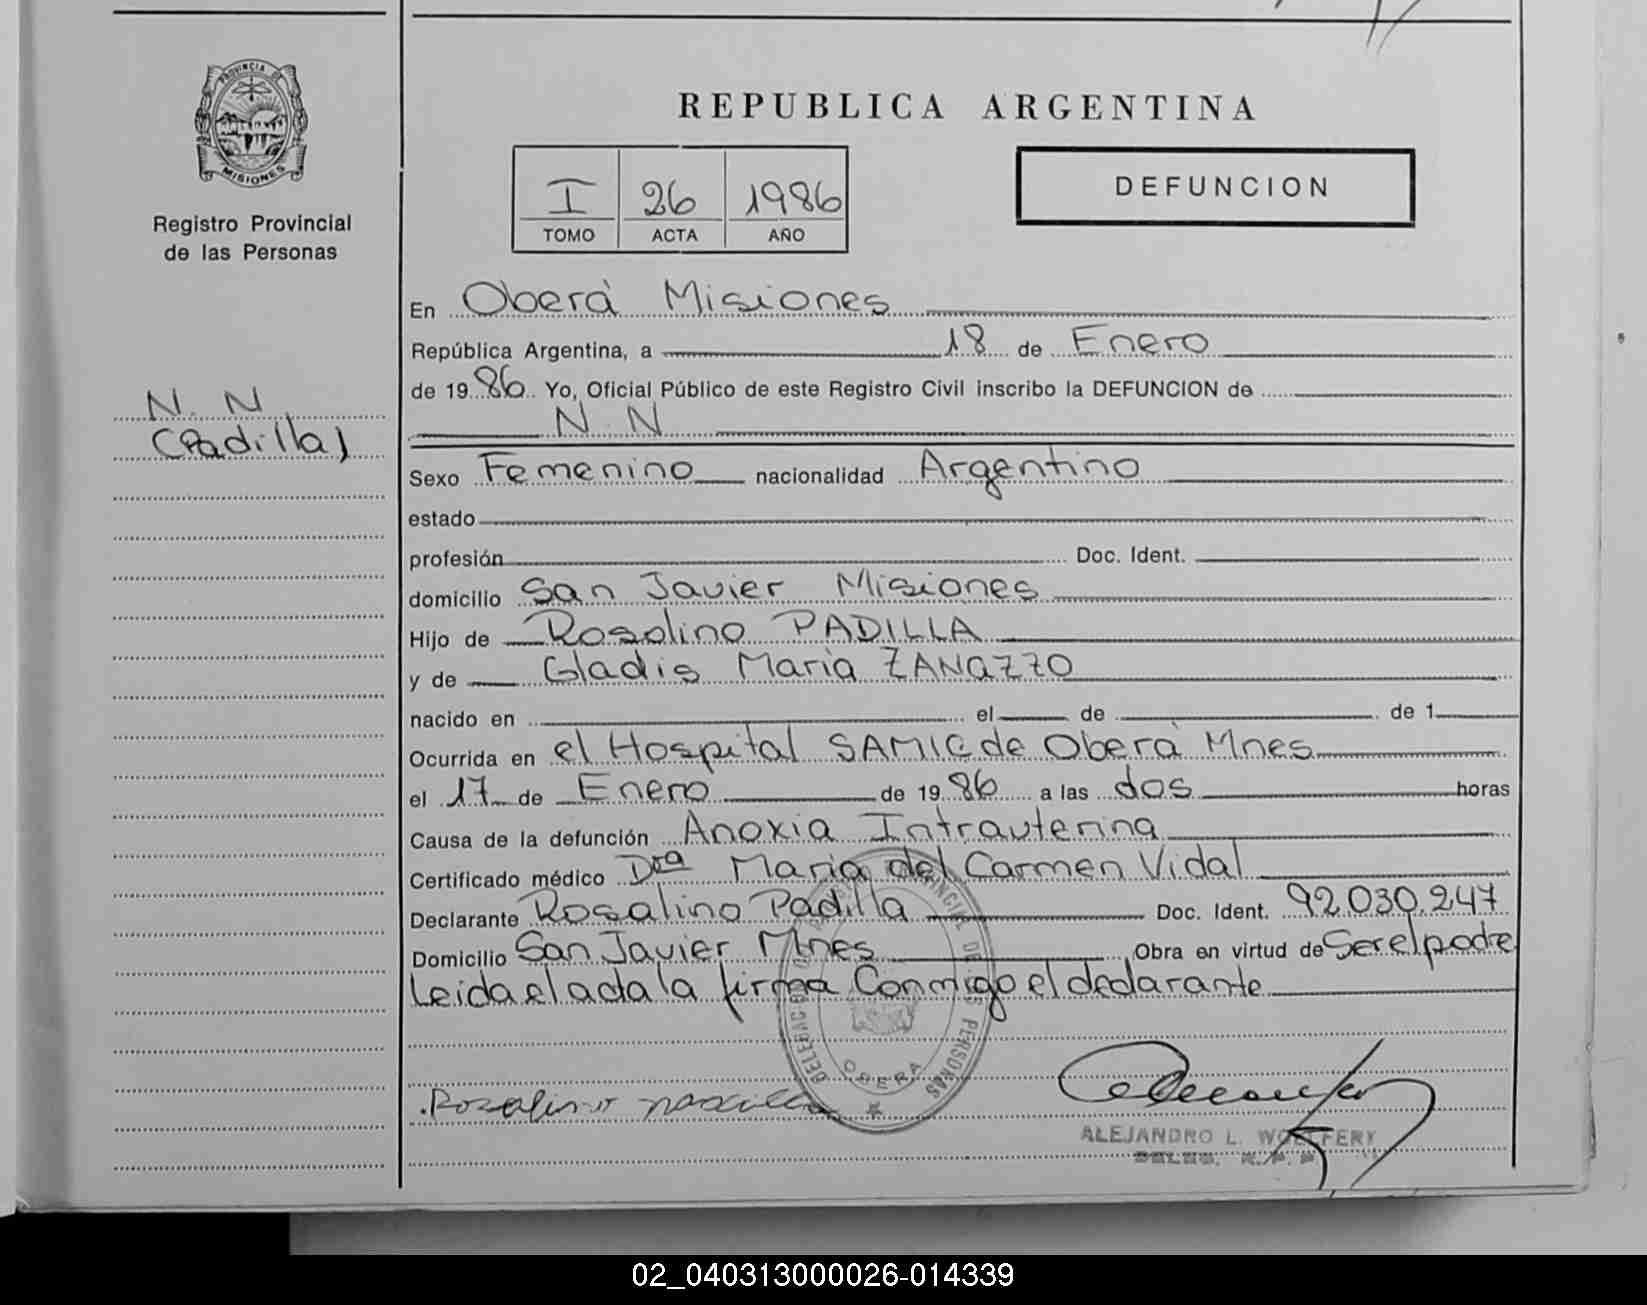 REPUBLICA ARGENTINA
PROVINCIA DE
MISIONES
Registro Provincial
de las Personas
I 26 1986
TOMO ACTA AÑO
DEFUNCION
En Oberá Misiones
República Argentina, a 18 de Enero
de 1986 Yo, Oficial Público de este Registro Civil inscribo la DEFUNCION de
N. N
N. N
(Padilla)
Sexo Femenino nacionalidad Argentino
estado
profesión Doc. Ident.
domicilio San Javier Misiones
Hijo de Rosalino PADILLA
y de Gladis Maria ZANAZZO
nacido en el de de 1
Ocurrida en el Hospital SAMIC de Oberá Mnes
el 17 de Enero de 1986 a las dos horas
Causa de la defunción Anoxia Intrauterina
Certificado médico Dra Maria del Carmen Vidal
Declarante Rosalino Padilla Doc. Ident. 92.030.247
Domicilio San Javier Mnes Obra en virtud de Ser el padre
Leida el acta la firma Conmigo el declarante
DE LAS PERSONAS
OBERA
Rosalino Padilla
ALEJANDRO L.
02_040313000026-014339